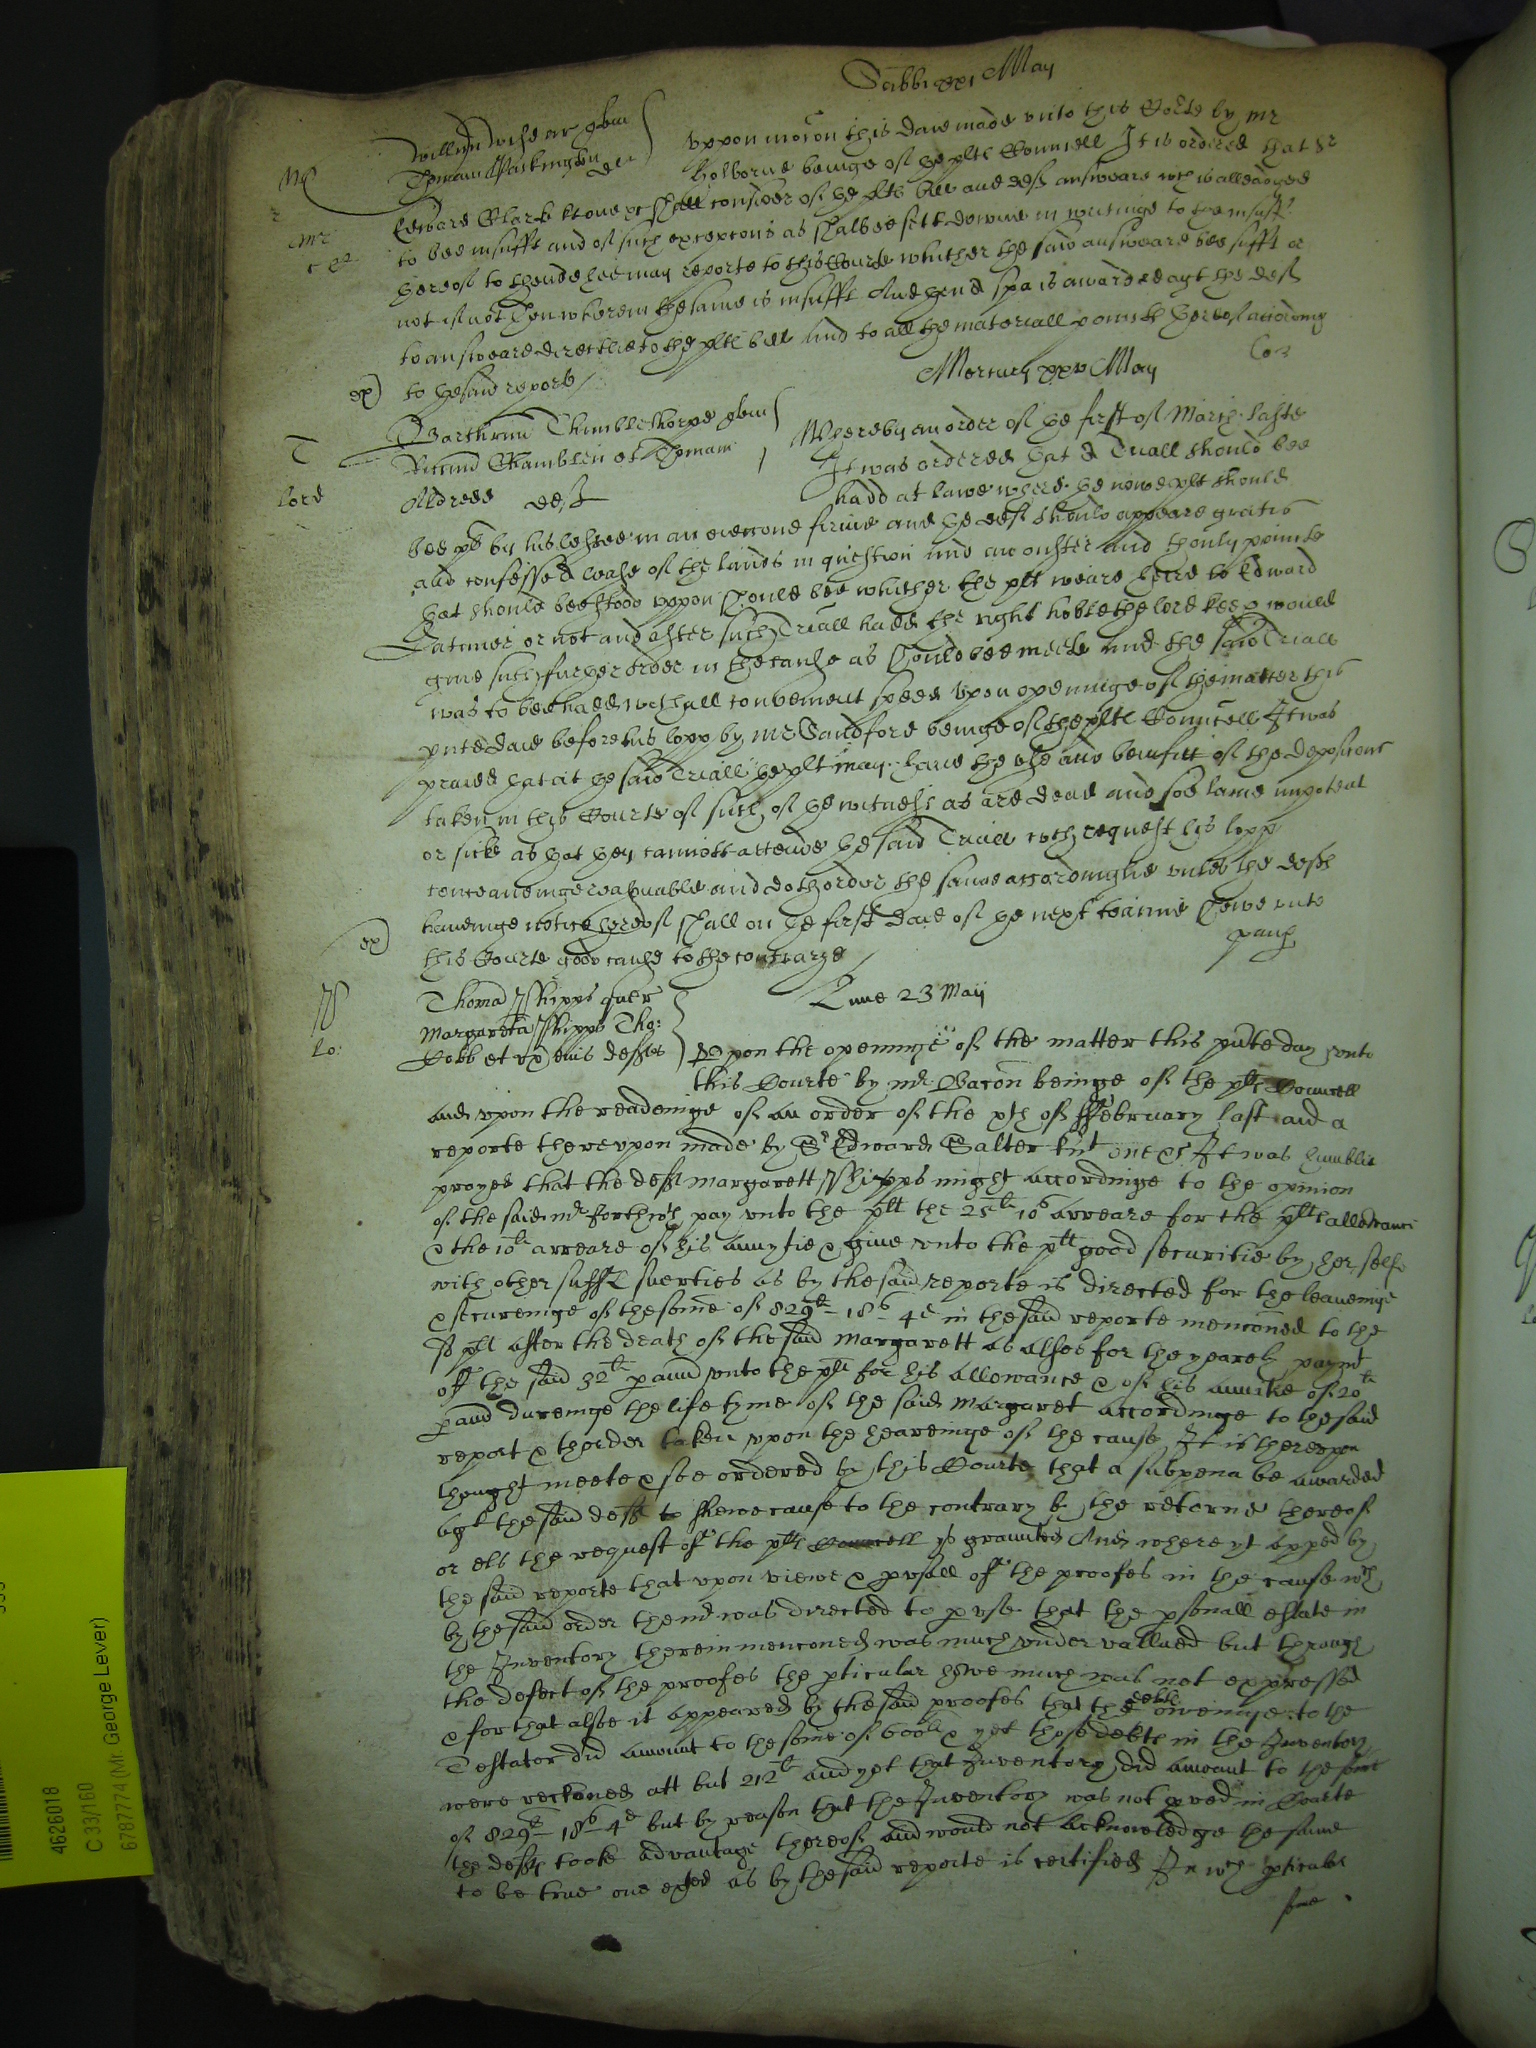 Sabbi xxi Maij
Willm quer
Thomam Parkington def
Uppon mocon this daie made unto this Corte by mr
Holborne beinge of the plts Councell It is ordered that Sr
Edward Clark knt one &c shall consider of the plts bill and defts answeare wch is alleadged
to bee insufft and of such excepcons as shalbee sett downe in writinge to the insuff
hereof to thende hee may reporte to this Courte whither the said answeare bee sufft or
not if not then wherein the same is insufft And then a spa is awarded agt the deft
to answeare directlie to the plts bill and to all the materiall points thereof accordinge
to the said reporte
Mercurij xxv Maij
Thimblethorpe quer
Ricum Chamblen et Thomam
Aldred def
Whereby an order of the first of March laste
It was ordered that a Triall should bee
hadd at lawe where the nowe plt should
bee pt by his lessee in an eieccone firme and the deft should appeare gratis
and confesse a lease of the lands in question and an ouster and thonly pointe
that should bee stood uppon should bee whither the plt weare heire to Edward
Latimer or not and after such Triall hadd the right hoble the lord keep would
give such further order in the cause as should bee meete and the said Triall
was to bee hadd with all convenient speed Upon openinge of the matter this
pnte daie before his lopp by mr Sandford beinge of the plts Councell It was
praied that at the said Triall the plt may have the use and benifitt of the deposicons
taken in this Courte of such of the witnesses as are dead and soe lame impotent
or sicke as that they cannott attende the said Triall wch request his lopp
conceaveinge reasonable and doth order the same accordinglie unles the defts
haveinge notice hereof shall on the first daie of the next tearme shewe unto
this Courte good cause to the contrarye
Lune 23 Maij
Thoma Skipps quer
Margareta Skipps Tho:
Cobb et ux eius defts
Upon the openinge of the matter this pnte day unto
this Courte by mr Bacon beinge of the plts Councell
and upon the readeinge of an order of the xth of ffebruary last and a
reporte thereupon made by Sr Edward Salter knt one &c It was humblie
prayed that the deft Margarett Skipps might accordinge to the opinion
of the said mr forthwth pay unto the plt the 25li 10s arreare for the plts allowance
& the 10li arreare of his annytie & give unto the plt good securitie by her selfe
with other sufft suerties as by the said reporte is directed for the leaveinge
& secureinge of the some of 829li 18s 4d in the said reporte mencioned to the
sd plt after the death of the said Margarett as alsoe for the yearely paymt
of the said 32li p ann unto the plt for his allowance & of his annitie of 20li
p ann dureinge the life tyme of the said Margaret accordinge to the said
report & thorder taken upon the heareinge of the cause It is thereupon
thought meete & soe ordered by this Courte that a subpena be awarded
agt the said deft to shewe cause to the contrary by the retorne thereof
or els the request of the plts Councell is graunted And where yt apped by
the said reporte that upon viewe & pusall of the proofes in the cause wch
by the said order the mr was directed to peruse that the psonall estate in
the Inventory therein mencioned was much under vallued but through
the defect of the proofes the pticular howe much was not expressed
& for that alsoe it appeared by the said proofes that the debts oweinge to the
Testator did amount to the some of 600li & yet those debts in the Inventory
were reckoned att but 212li and yet that Inventory did amount to the some
of 829li 18s 4d but by reason that the Inventory was not pved in Courte
the defts tooke advantage thereof and would not acknowledge the same
to be true one as by the said reporte is certified In wch pticulers
some
4626018
C 33/160
6787774 (Mr George Lever)